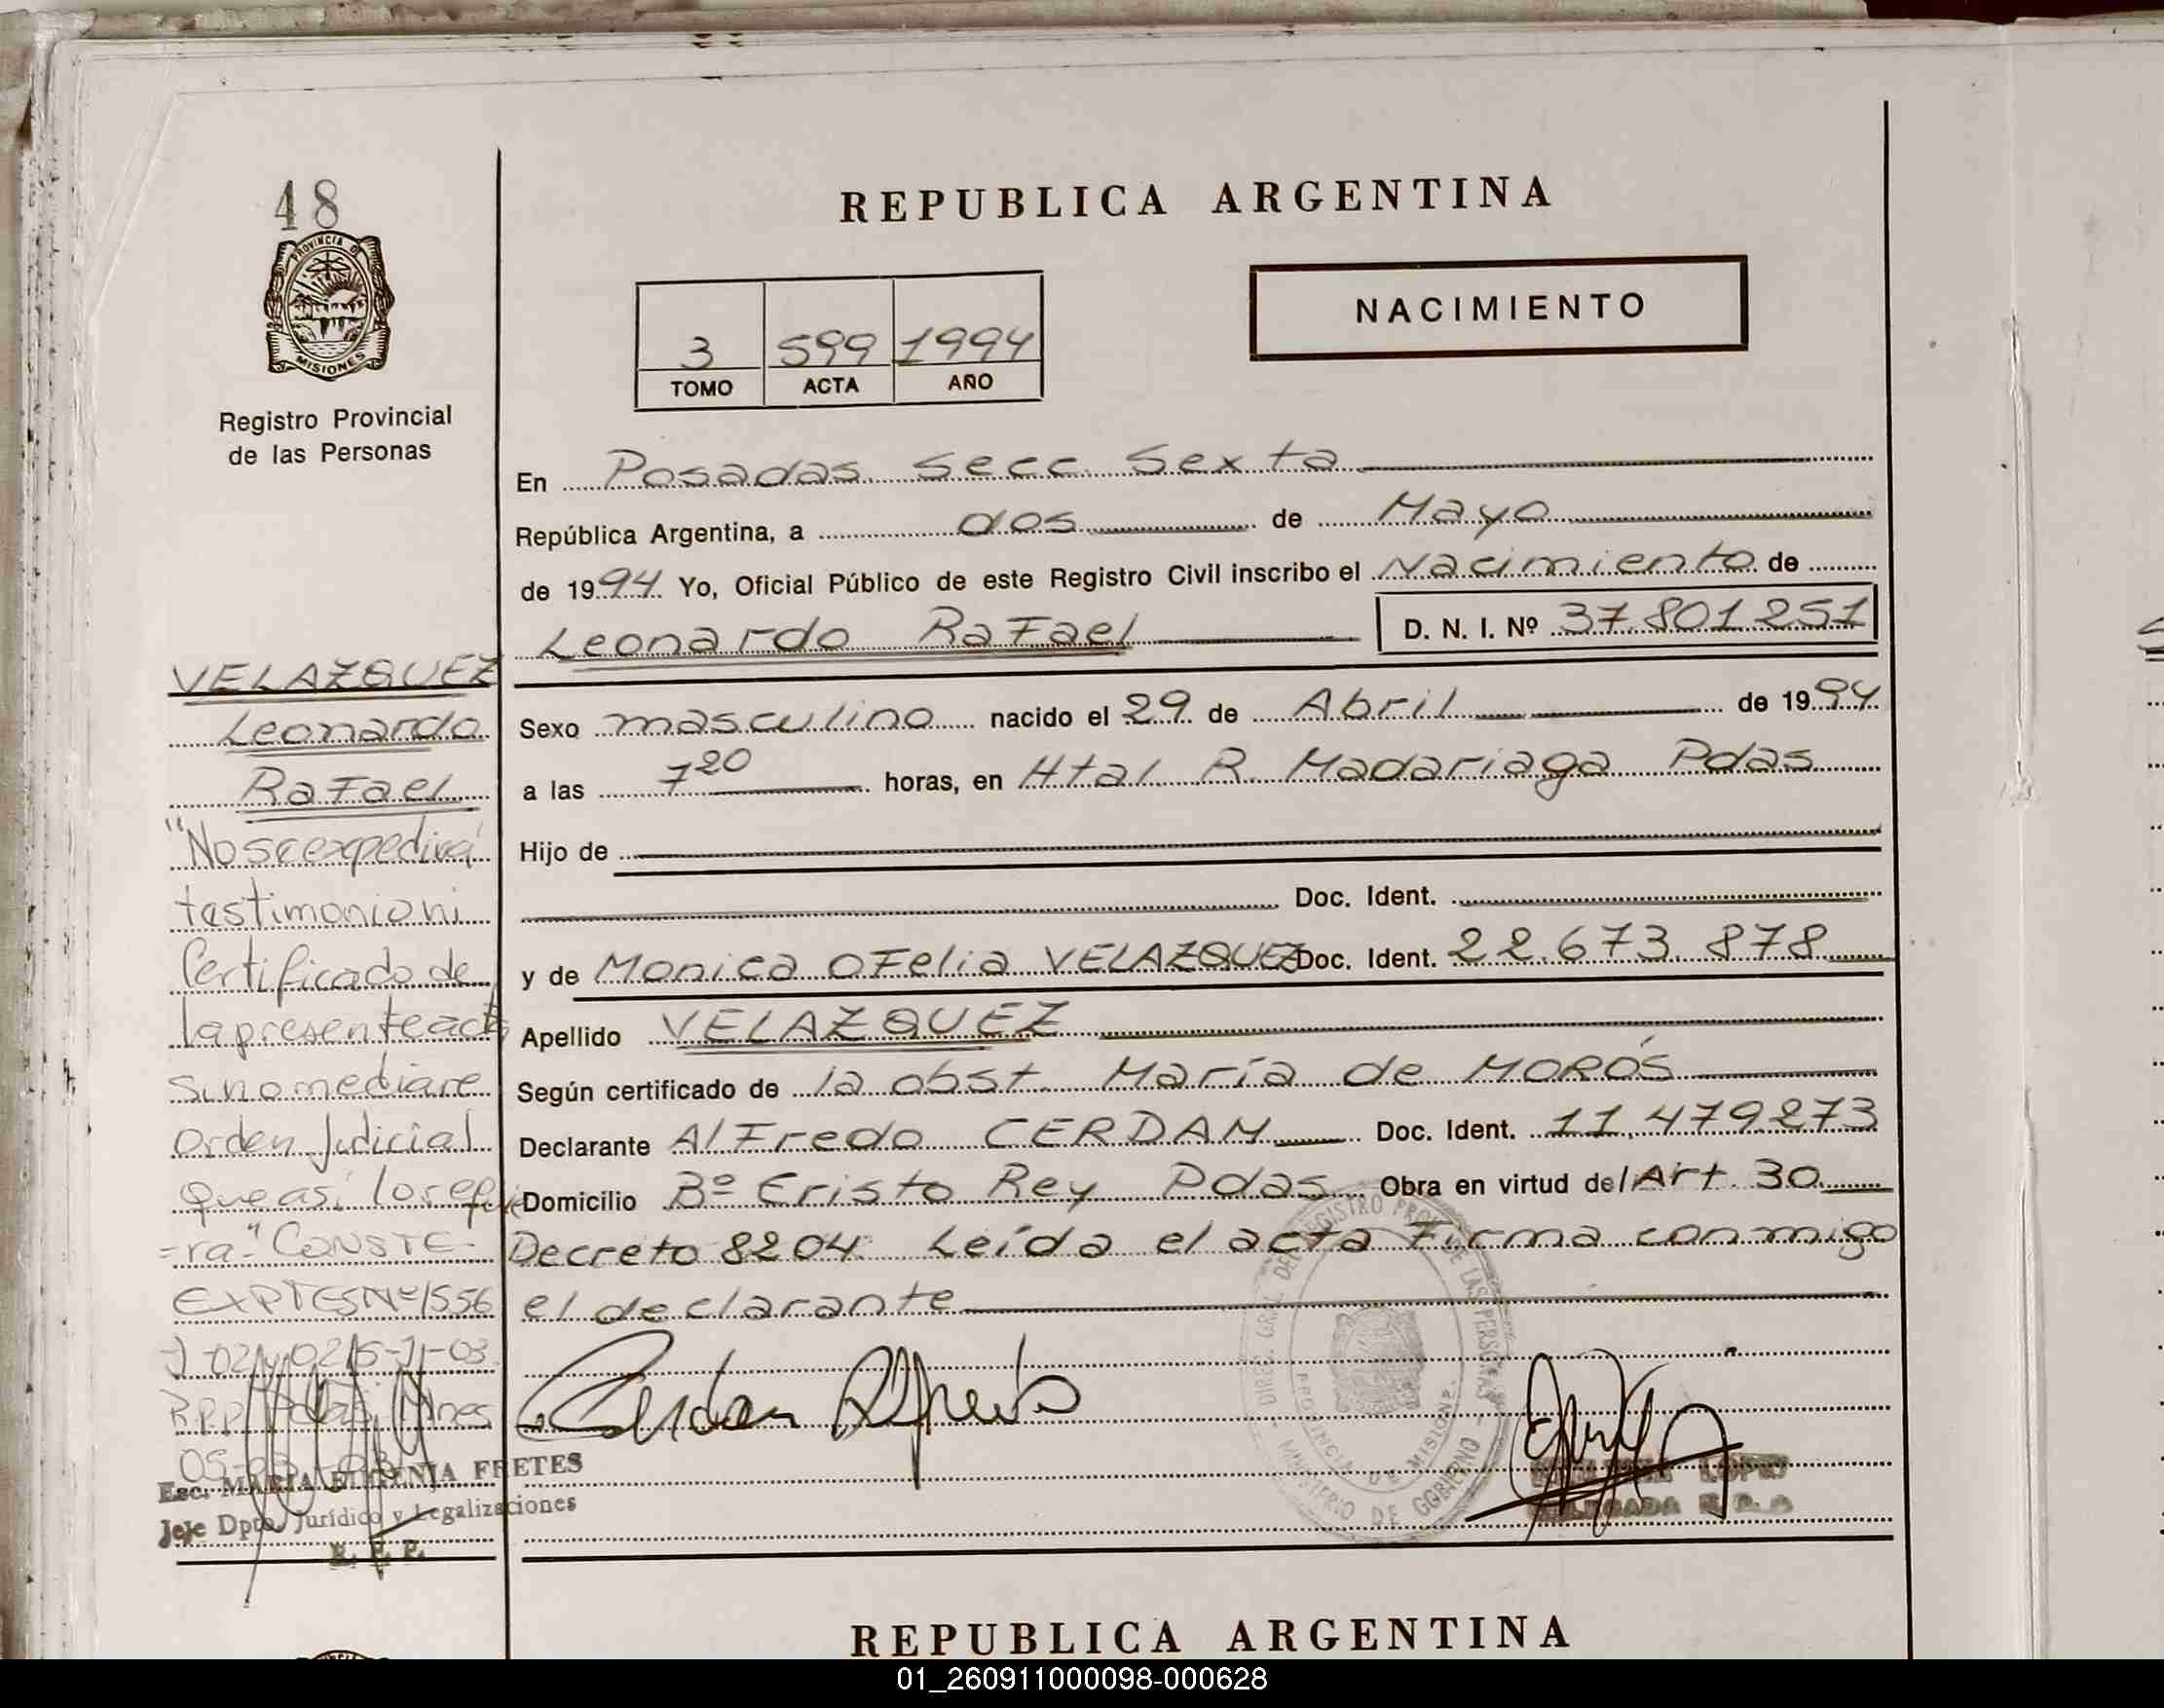 48
PROVINCIA DE
MISIONES
Registro Provincial
de las Personas
REPUBLICA ARGENTINA
3 599 1994
TOMO ACTA AÑO
NACIMIENTO
En Posadas Secc. Sexta
República Argentina, a dos de Mayo
de 1994 Yo, Oficial Público de este Registro Civil inscribo el Nacimiento de
Leonardo Rafael D. N. I. Nº 37.801251
Sexo masculino nacido el 29 de Abril de 1994
a las 7 20 horas, en Htal. R. Madariaga Pdas
Hijo de
Doc. Ident.
y de Monica Ofelia VELAZQUEZ Doc. Ident. 22.673.878
Apellido VELAZQUEZ
Según certificado de la obst. María de MORÓS
Declarante Alfredo CERDAN Doc. Ident. 11.479.273
Domicilio Bº Cristo Rey Pdas Obra en virtud del Art. 30
Decreto 8204. Leída el acta firma conmigo
el declarante
Cerdan Alfredo
VELAZQUEZ
Leonardo
Rafael
"No se expedirá
testimonio ni
Certificado de
la presente acta
si no mediare
Orden Judicial
que así lo requie
=ra." CONSTE-
EXPTES Nº 1556
R.P.P. Pdas. Mnes
Esc. MARIA EUGENIA FRETES
Jefe Dpto. Jurídico y Legalizaciones
R. P. P.
DIREC. GRAL. DEL REGISTRO PROV. DE LAS PERSONAS
PROVINCIA DE MISIONES
MINISTERIO DE GOBIERNO
LOPEZ
REPUBLICA ARGENTINA
01_260911000098-000628